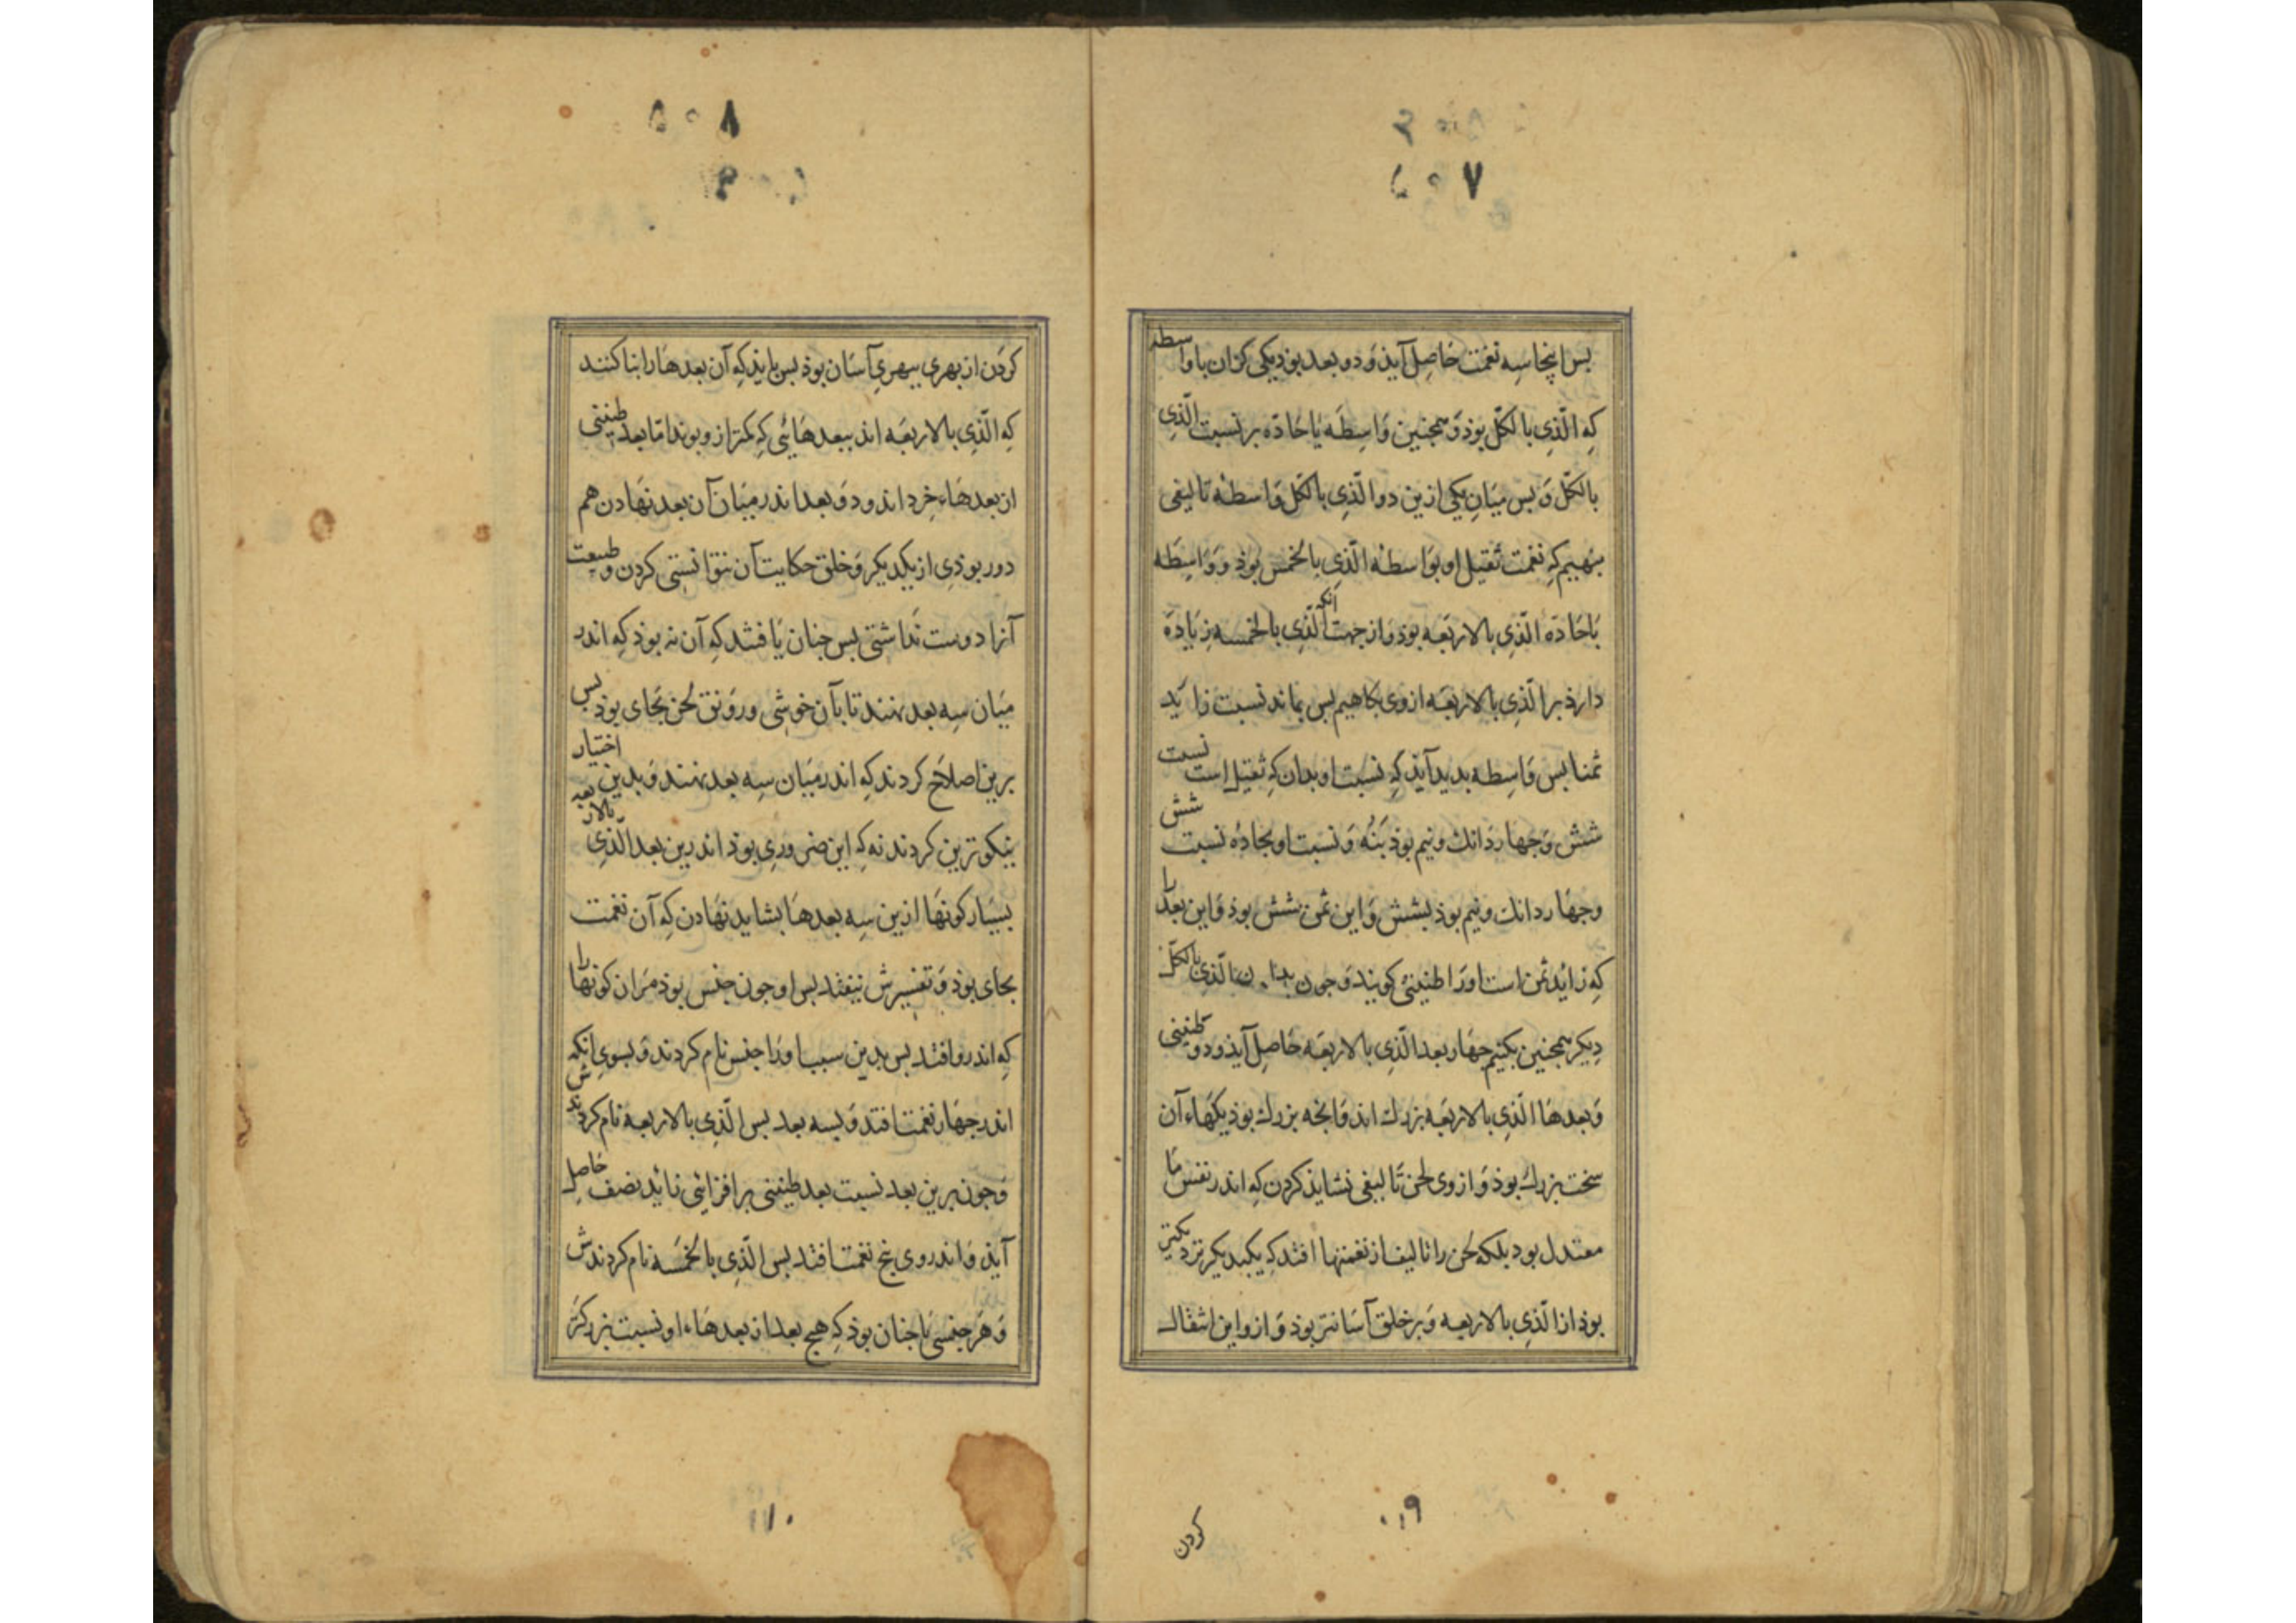 ۵۰۷
بس اینجا سه نغمت حاصل آیذ و دو بعد بوذ یکی کران با واسطه
که الّذی بالکلّ بوذ و همجنین واسطه یا حادّه بر نسبت الّذی
بالکلّ و بس میان یکی ازین دو الّذی بالکلّ واسطهٔ تالیفی
بنهیم که نغمت ثقیل او بواسطه الّذی بالخمس بوذ و واسطه
باحادّه الّذی بالاربعه بوذ و از جهت آنکه الّذی بالخمسه زیاده
دارذ بر الّذی بالاربعه ازوی بکاهیم بس بماند نسبت زاید
ثمنا بس واسطه بدید آیذ که نسبت او بدان که ثقیل است نسبت
شش و جهار دانك و نیم بوذ بنه و نسبت او بحادّه نسبت شش
و جهار دانك و نیم بوذ بشش و این ثمن شش بوذ و این بعد را
که زاید ثمن است اورا طنینی کویند و جون الّذی بالکلّ
دیکر همجنین بکنیم جهار بعد الّذی بالاربعه حاصل آیذ و دو طنینی
و بعدها الّذی بالاربعه بزرك اند و انجه بزرك بوذ یکهاء آن
سخت بزرك بوذ و از وی لحن تالیفی نشایذ کردن که اندر نفس ما
معتدل بود بلکه لحن را تالیف از نغمتها افتد که یکبدیکر نزدیکتر
بوذ از الّذی بالاربعه و بر خلق آسانتر بوذ و از و این انتقال
۱۹
کردن
۵۰۸
کردن از بهری ببهری آسان بوذ بس بایذ که آن بعدها را بنا کنند
که الّذی بالاربعه اند ببعدهائی که کمتر ازو بوند امّا بعد طنینی
از بعدهاء خرد اند و دو بعد اندر میان آن بعد نهادن هم
دور بوذی از یکدیکر و خلق حکایت آن نتوانستی کردن و طبیعت
آنرا دوست نداشتی بس جنان یافتند که آن نه بوذ که اندر
میان سه بعد نهند تا بآن خوشی و رونق لحن بجای بوذ بس
برین اصلاح کردند که اندر میان سه بعد نهند و بدین اختیار
نیکوترین کردند نه که این ضروری بوذ اندرین بعد الّذی بالاربعه
بسیار کونها ازین سه بعدها بشاید نهادن که آن نغمت
بجای بوذ و تفسیرش نیفتد بس او جون جنس بوذ مران کونها را
که اندرو افتد بس بدین سبب اورا جنس نام کردند و بسوی انکه
اندر جهار نغمت افتد و بسه بعد بس الّذی بالاربعه نام کردندش
و جون برین بعد نسبت بعد طنینی برافزائی زاید نصف حاصل
آیذ و اندر وی بنج نغمت افتد بس الّذی بالخمسه نام کردندش
و هر جنسی یا جنان بوذ که هیج بعد از بعدهاء او نسبت بزرکتر
۱۱۰